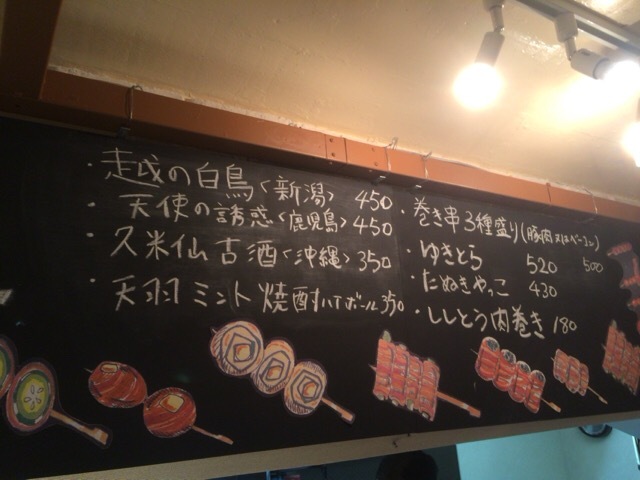 ・越の白鳥〈新潟〉 450
・天使の誘惑〈鹿児島〉450
・久米仙古酒〈沖縄〉350
・天羽ミント焼酎ハイボール350
・巻き串3種盛り(豚肉又はベーコン)
500
・ゆきとら 520
・たぬきやっこ 430
・ししとう肉巻き 180